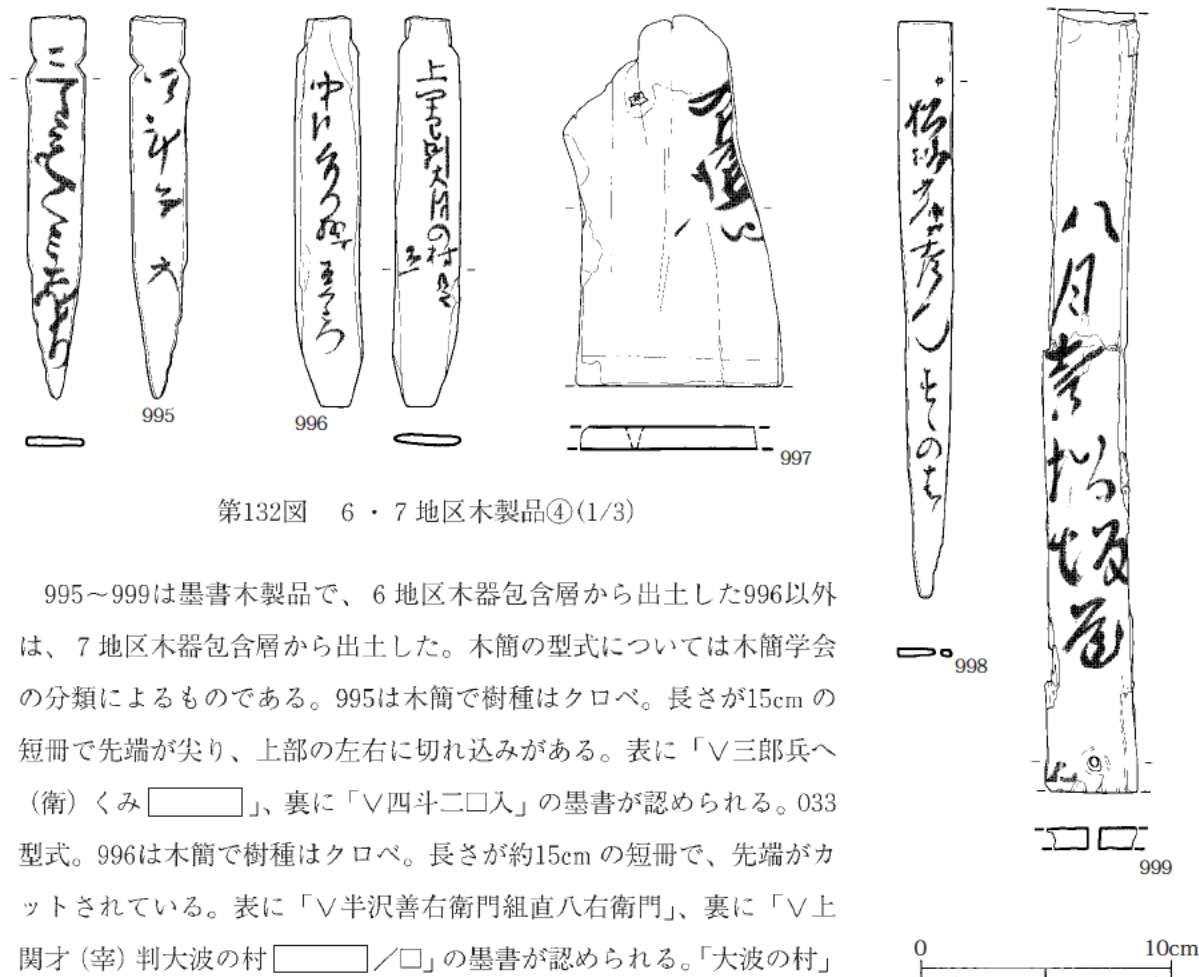 995
996
997
998
999
第132図 6・7地区木製品④(1/3)
995～999は墨書木製品で、6地区木器包含層から出土した996以外
は、7地区木器包含層から出土した。木簡の型式については木簡学会
の分類によるものである。995は木簡で樹種はクロベ。長さが15cm の
短冊で先端が尖り、上部の左右に切れ込みがある。表に「∨三郎兵へ
（衛）くみ□」、裏に「∨四斗二□入」の墨書が認められる。033
型式。996は木簡で樹種はクロベ。長さが約15cm の短冊で、先端がカ
ットされている。表に「∨半沢善右衛門組直八右衛門」、裏に「∨上
関才（宰）判大波の村□／□」の墨書が認められる。「大波の村」
0 10cm
八月